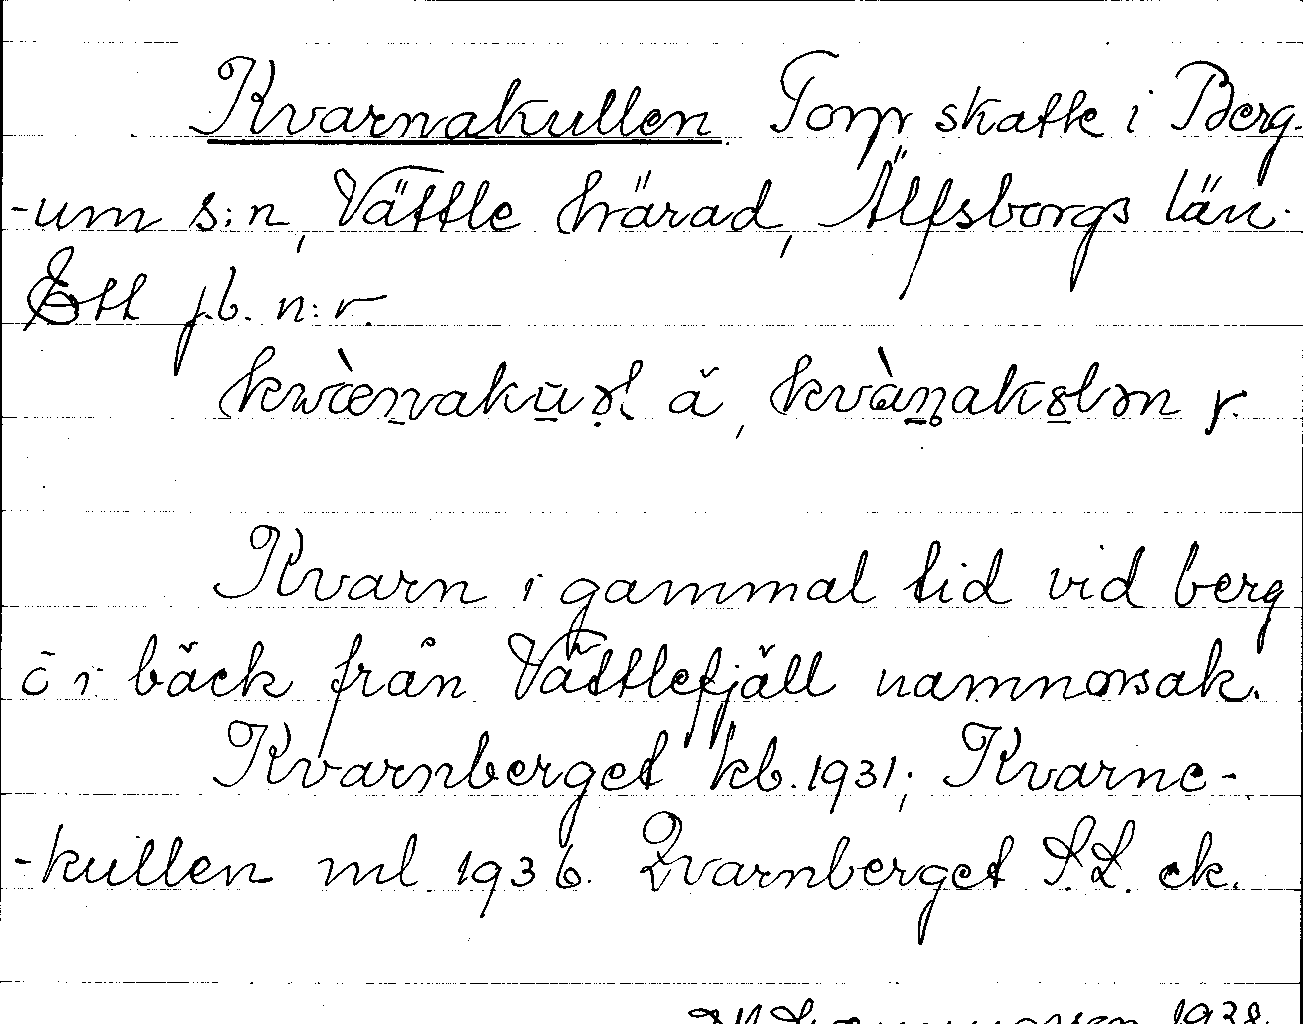 Kvarnakullen Torp skatte i Berg-
-um s:n, Vättle härad, Älfsborgs län.
Ett j.b. n:r.
kwæ̀nakūl ă, kvànakslən r.
Kvarn i gammal tid vid berg
ō i bäck från Vättlefjäll namnorsak.
Kvarnberget kb. 1931; Kvarne-
-kullen ml 1936. Qvarnberget S.L. ek.
1938.